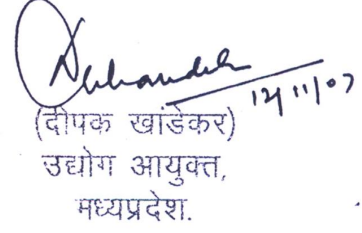 12/11/07
(दीपक खांडेकर)
उद्योग आयुक्त,
मध्यप्रदेश.